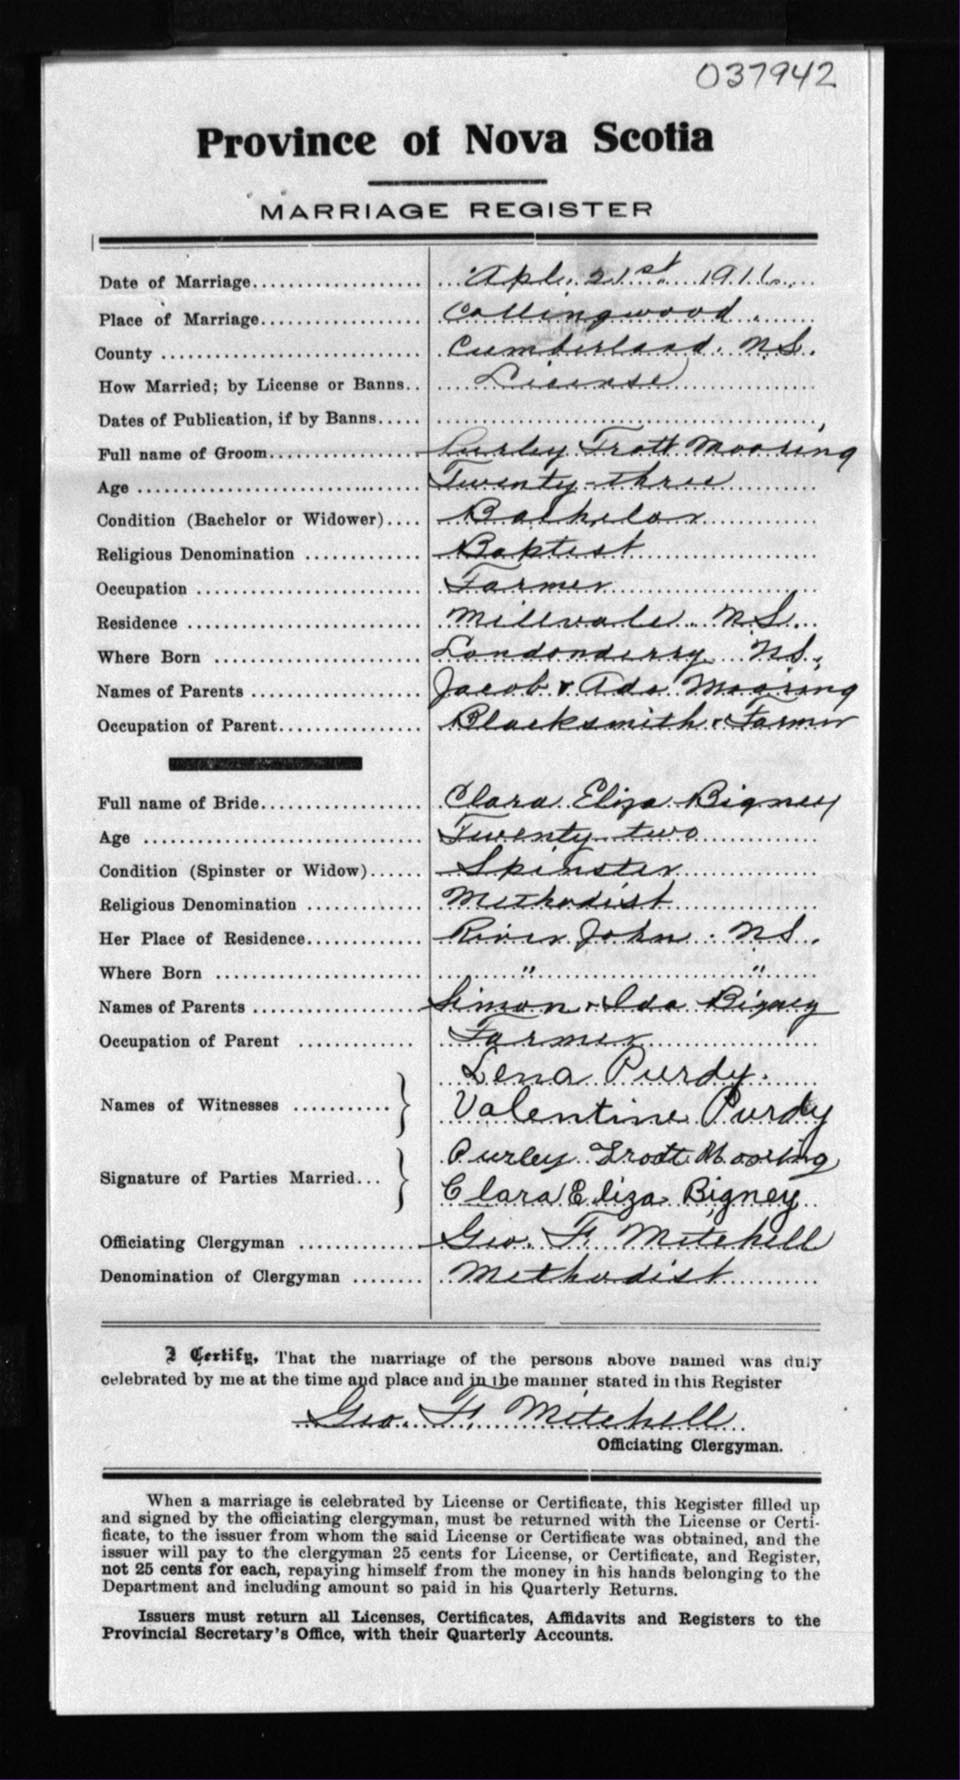 037942
Province of Nova Scotia
MARRIAGE REGISTER
Date of Marriage.................... Apl. 21st 1916.
Place of Marriage................... Collingwood.
County ............................. Cumberland. N.S.
How Married; by License or Banns.. License
Dates of Publication, if by Banns.....
Full name of Groom.................. Purley Trott Mooring
Age ................................ Twenty-three
Condition (Bachelor or Widower).... Bachelor
Religious Denomination ............. Baptist
Occupation ......................... Farmer
Residence .......................... Millvale. N.S.
Where Born ......................... Londonderry N.S.
Names of Parents ................... Jacob & Ada Mooring
Occupation of Parent................ Blacksmith & Farmer
Full name of Bride.................. Clara Eliza Bigney
Age ................................ Twenty two
Condition (Spinster or Widow)...... Spinster
Religious Denomination ............. Methodist
Her Place of Residence.............. River John. N.S.
Where Born ......................... " "
Names of Parents ................... Simon & Ida Bigney
Occupation of Parent ............... Farmer
Names of Witnesses ........... } Lena Purdy.
Valentine Purdy
Signature of Parties Married... } Purley Trott Mooring
Clara Eliza Bigney
Officiating Clergyman .............. Geo. F. Mitchell
Denomination of Clergyman ........ Methodist
I Certify, That the marriage of the persons above named was duly
celebrated by me at the time and place and in the manner stated in this Register
Geo. F. Mitchell
Officiating Clergyman.
When a marriage is celebrated by License or Certificate, this Register filled up
and signed by the officiating clergyman, must be returned with the License or Certi-
ficate, to the issuer from whom the said License or Certificate was obtained, and the
issuer will pay to the clergyman 25 cents for License, or Certificate, and Register,
not 25 cents for each, repaying himself from the money in his hands belonging to the
Department and including amount so paid in his Quarterly Returns.
Issuers must return all Licenses, Certificates, Affidavits and Registers to the
Provincial Secretary's Office, with their Quarterly Accounts.